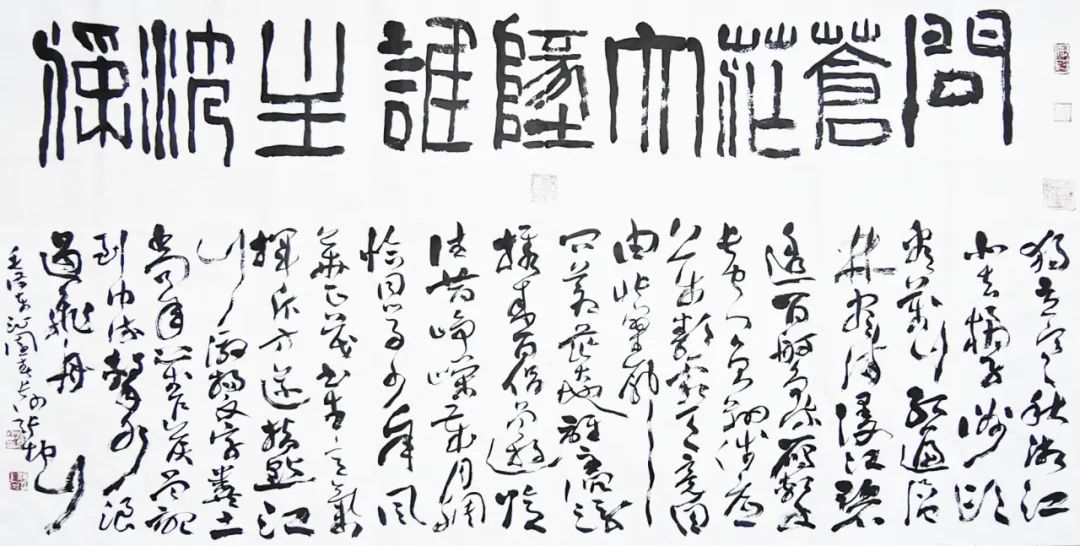 問蒼茫大墬誰主沈浮
獨立寒秋湘江
北去橘子洲頭
看萬山紅遍層
林盡染漫江碧
透百舸爭流鷹擊
長空魚翔淺底
萬類霜天競自
由悵寥廓
問蒼茫大地誰主沉浮
攜來百侶曾遊憶
往昔崢嶸歲月稠
恰同學少年風
華正茂書生意氣
揮斥方遒指點江
山激揚文字糞土
當年萬戶侯曾記
到中流擊水浪
遏飛舟
毛澤東沁園春長沙